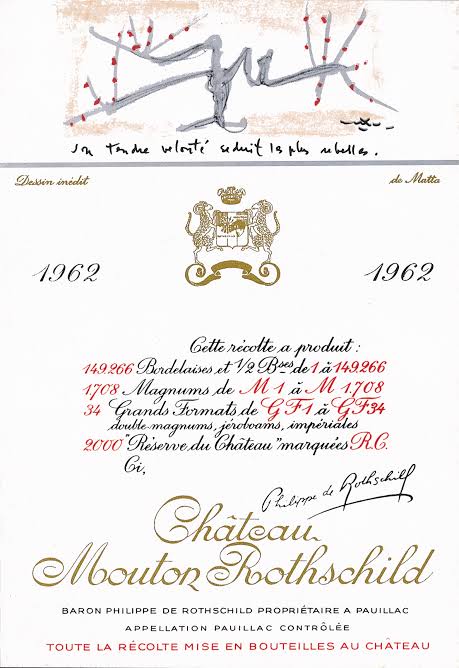 son tendre velouté séduit les plus rebelles.
Dessin inédit de Matta
1962 1962
Cette récolte a produit :
149.266 Bordelaises et 1/2 Bses de 1 à 149.266
1.708 Magnums de M 1 à M 1.708
34 Grands Formats de G F 1 à G F 34
double-magnums, jéroboams, impériales
2000 "Réserve du Château" marquées R.C.
Ci,
Philippe de Rothschild
Château
Mouton Rothschild
BARON PHILIPPE DE ROTHSCHILD PROPRIÉTAIRE A PAUILLAC
APPELLATION PAUILLAC CONTRÔLÉE
TOUTE LA RÉCOLTE MISE EN BOUTEILLES AU CHÂTEAU